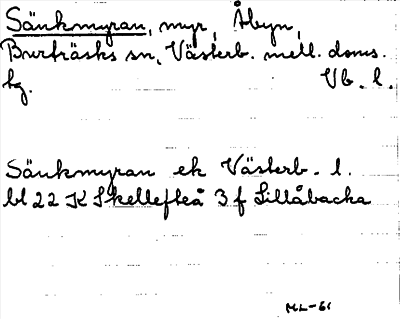 Sänkmyran, myr, Åbyn,
Burträsks sn, Västerb. mell. doms.
tg. Vb. l.
Sänkmyran ek Västerb. l.
bl 22 K Skellefteå 3 f Lillåbacka
ML-61